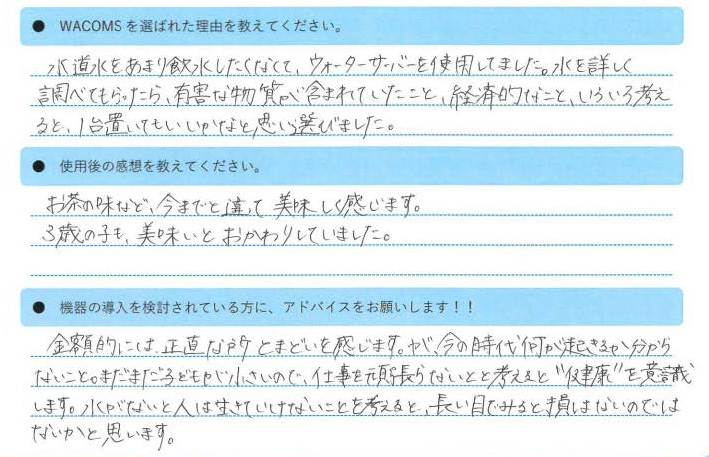 ● WACOMS を選ばれた理由を教えてください。
水道水をあまり飲水したくなくて、ウォーターサーバーを使用してました。水を詳しく
調べてもらったら、有害な物質が含まれていたこと、経済的なこと、いろいろ考え
ると、1台置いてもいいかなと思い選びました。
● 使用後の感想を教えてください。
お茶の味など、今までと違って美味しく感じます。
3歳の子も、美味いとおかわりしていました。
● 機器の導入を検討されている方に、アドバイスをお願いします！！
金額的には、正直な所とまどいを感じます。が、今の時代何が起きるか分から
ないこと。まだまだ子どもが小さいので、仕事を頑張らないとと考えると"健康"を意識
します。水がないと人は生きていけないことを考えると、長い目でみると損はないのでは
ないかと思います。